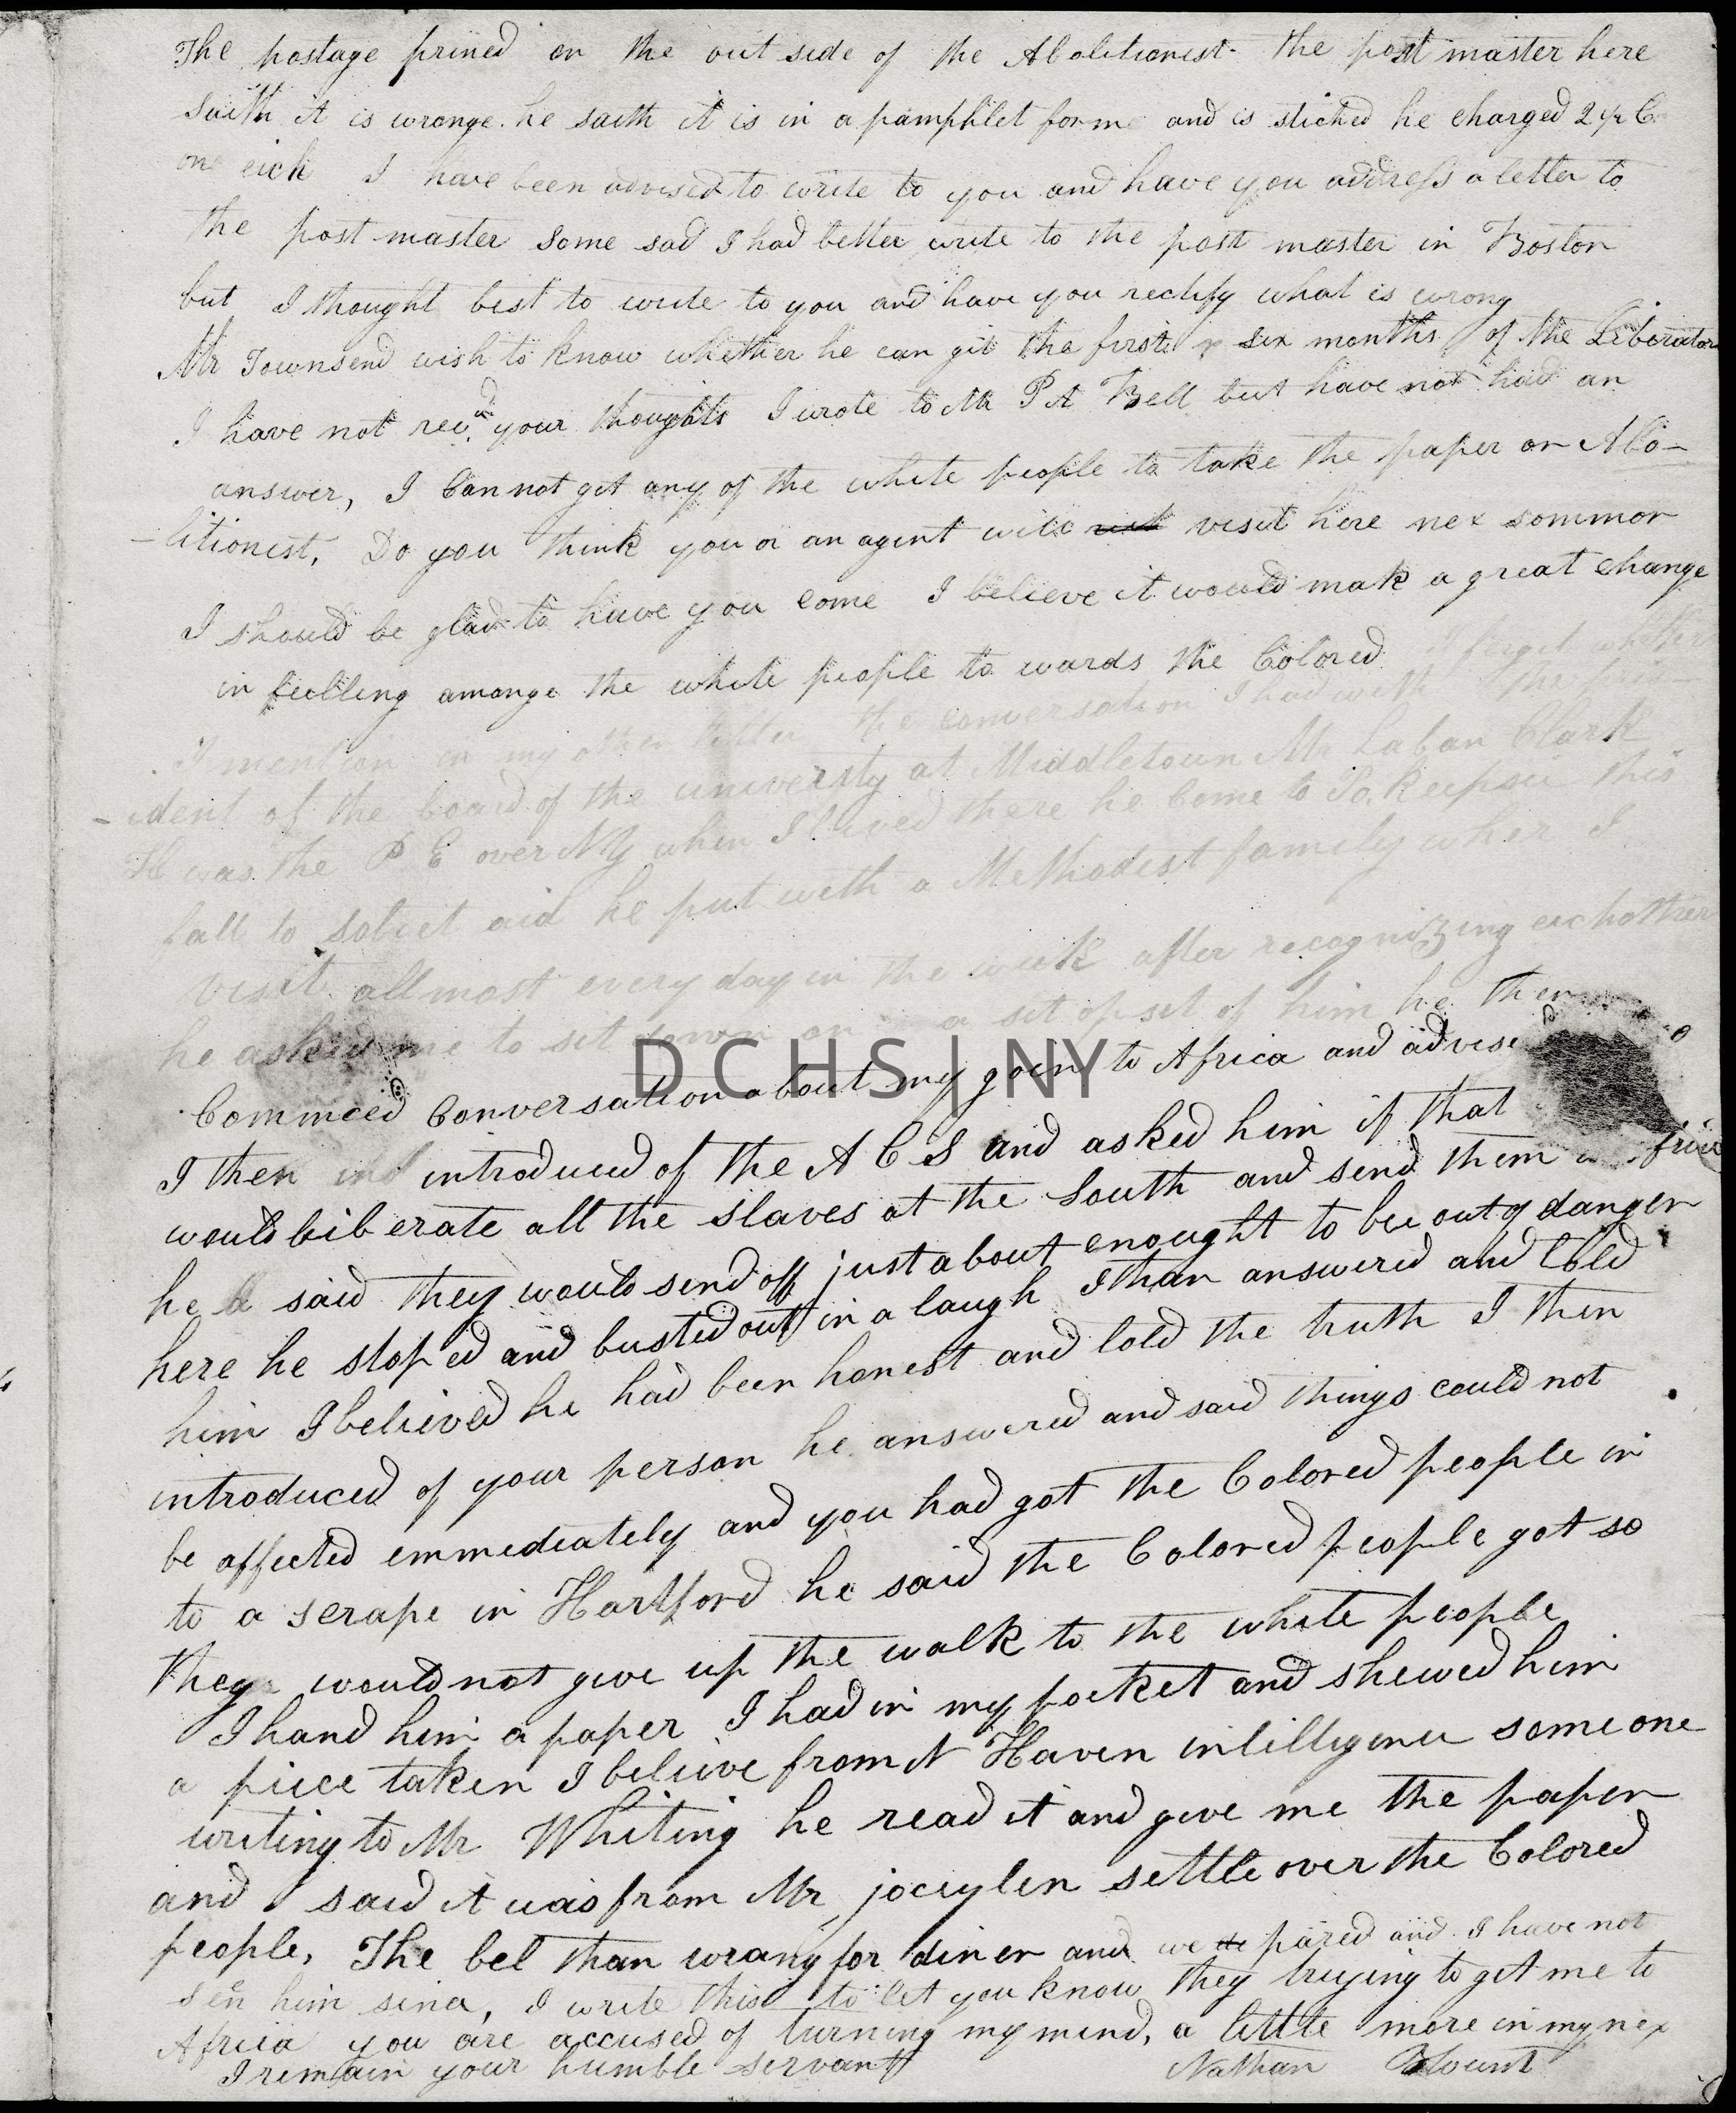 The postage prined on the out side of the Abolitionist- the post master here
saith it is wronge. he saith it is in a pamphlet forme and is stiched he charged 2 1/2 C
one eich I have been advised to write to you and have you address a letter to
the post master some sad I had better write to the post master in Boston
but I thought best to write to you and have you rectify what is wrong
Mr Townsend wish to know whether he can git the first six months of the Liberator
I have not recd your thoughts I wrote to Mr P A Bell but have not had an
answer, I Can not get any of the white people to take the paper or Abo-
-litionist, Do you think you or an agent will visit here nex sommor
I should be glad to have you come I believe it would mak a great change
in feelling amonge the white people to wards the Colored I forgot whether
I mention in my other letter the conversation I had with the pris-
-ident of the board of the univeirsty at Middletown Mr Laban Clark
He was the P E over NY when I lived there he Come to Po.Keepsie this
fall to solicit aid he put with a Methodist family wher I
visit allmost every day in the week after recognizing eichother
he asked me to set down on a set opset of him he then
Commced Conversation about my goin to Africa and advise
I then introduced of the A C S and asked him if that
would liberate all the slaves at the South and send them
he said they would send off just about enought to bee out of danger
here he stoped and busted out in a laugh I than answered and told
him I believed he had been honest and told the truth I then
introduced of your person he answered and said things could not
be affected emmediately and you had got the Colored people in
to a scrape in Hartford he said the Colored people got so
they would not give up the walk to the white people
I hand him a paper I had in my pocket and shewed him
a piece taken I believe from N Haven intilligence some one
writing to Mr Whiting he read it and give me the paper
and said it was from Mr joceylen settle over the Colored
people, The bel than wrang for diner and we pared and I have not
seen him since, I write this to let you know they triying to get me to
Africa you are accused of turning my mind, a little more in my nex
I remain your humble servant Nathan Blount
DCHS|NY